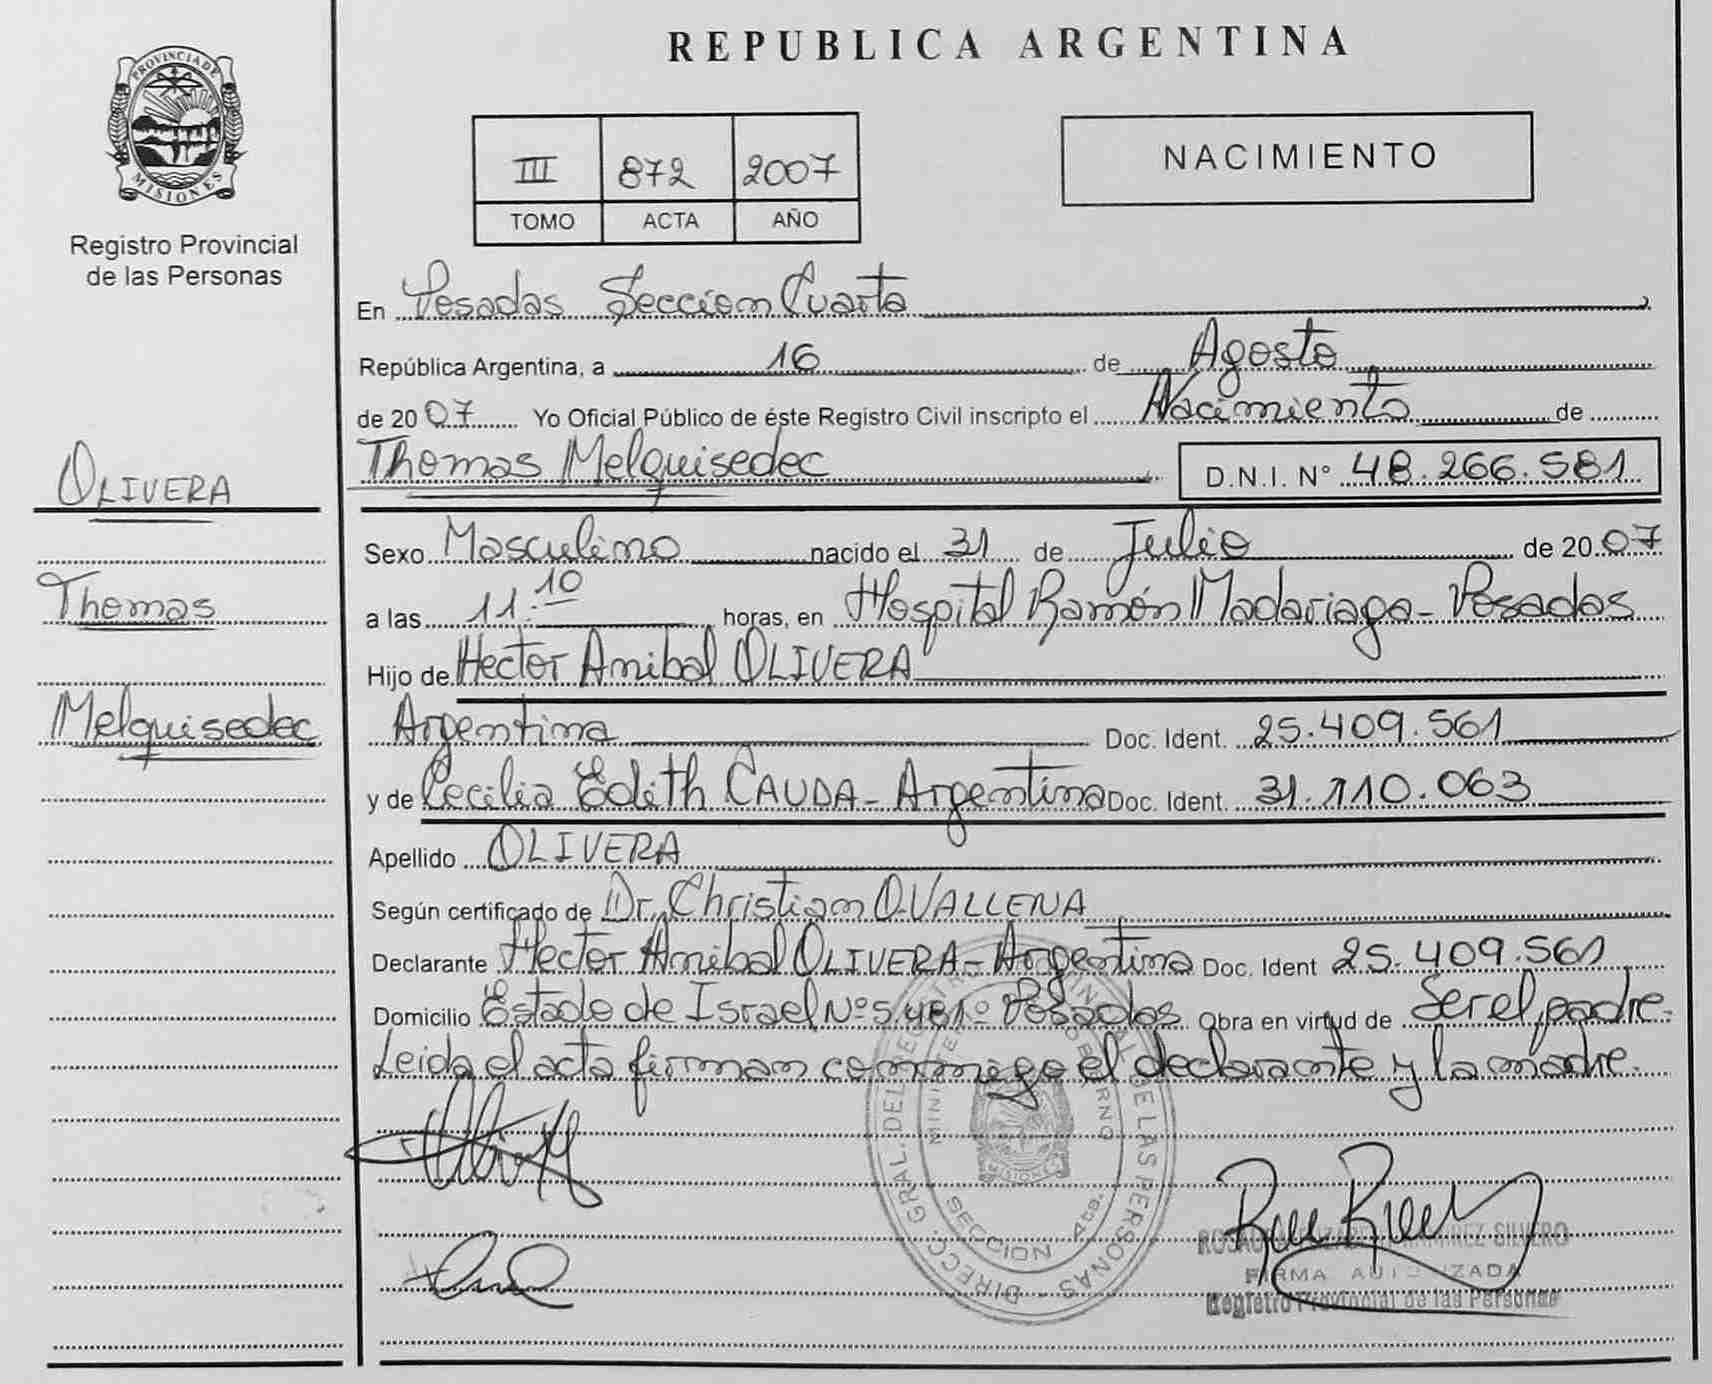 REPUBLICA ARGENTINA
PROVINCIA DE
MISIONES
Registro Provincial
de las Personas
III 872 2007
TOMO ACTA AÑO
NACIMIENTO
En Posadas Sección Cuarta
República Argentina, a 16 de Agosto
de 2007 Yo Oficial Público de éste Registro Civil inscripto el Nacimiento de
Thomas Melquisedec D.N.I. N° 48.266.581
OLIVERA
Thomas
Melquisedec
Sexo Masculino nacido el 31 de Julio de 2007
a las 11:10 horas, en Hospital Ramón Madariaga - Posadas
Hijo de Hector Anibal OLIVERA
Argentina Doc. Ident. 25.409.561
y de Cecilia Edith CAUDA - Argentina Doc. Ident. 31.110.063
Apellido OLIVERA
Según certificado de Dr. Christian O. VALLENA
Declarante Hector Anibal OLIVERA - Argentina Doc. Ident 25.409.561
Domicilio Estado de Israel N° 5.481° Posadas Obra en virtud de Ser el padre.
Leida el acta firman conmigo el declarante y la madre.
DIRECC. GRAL. DEL REGISTRO PROVINCIAL DE LAS PERSONAS
MINISTERIO GOBIERNO
MISIONES
SECCION 4ta.
SILVERO
FIRMA AUTORIZADA
Registro Provincial de las Personas